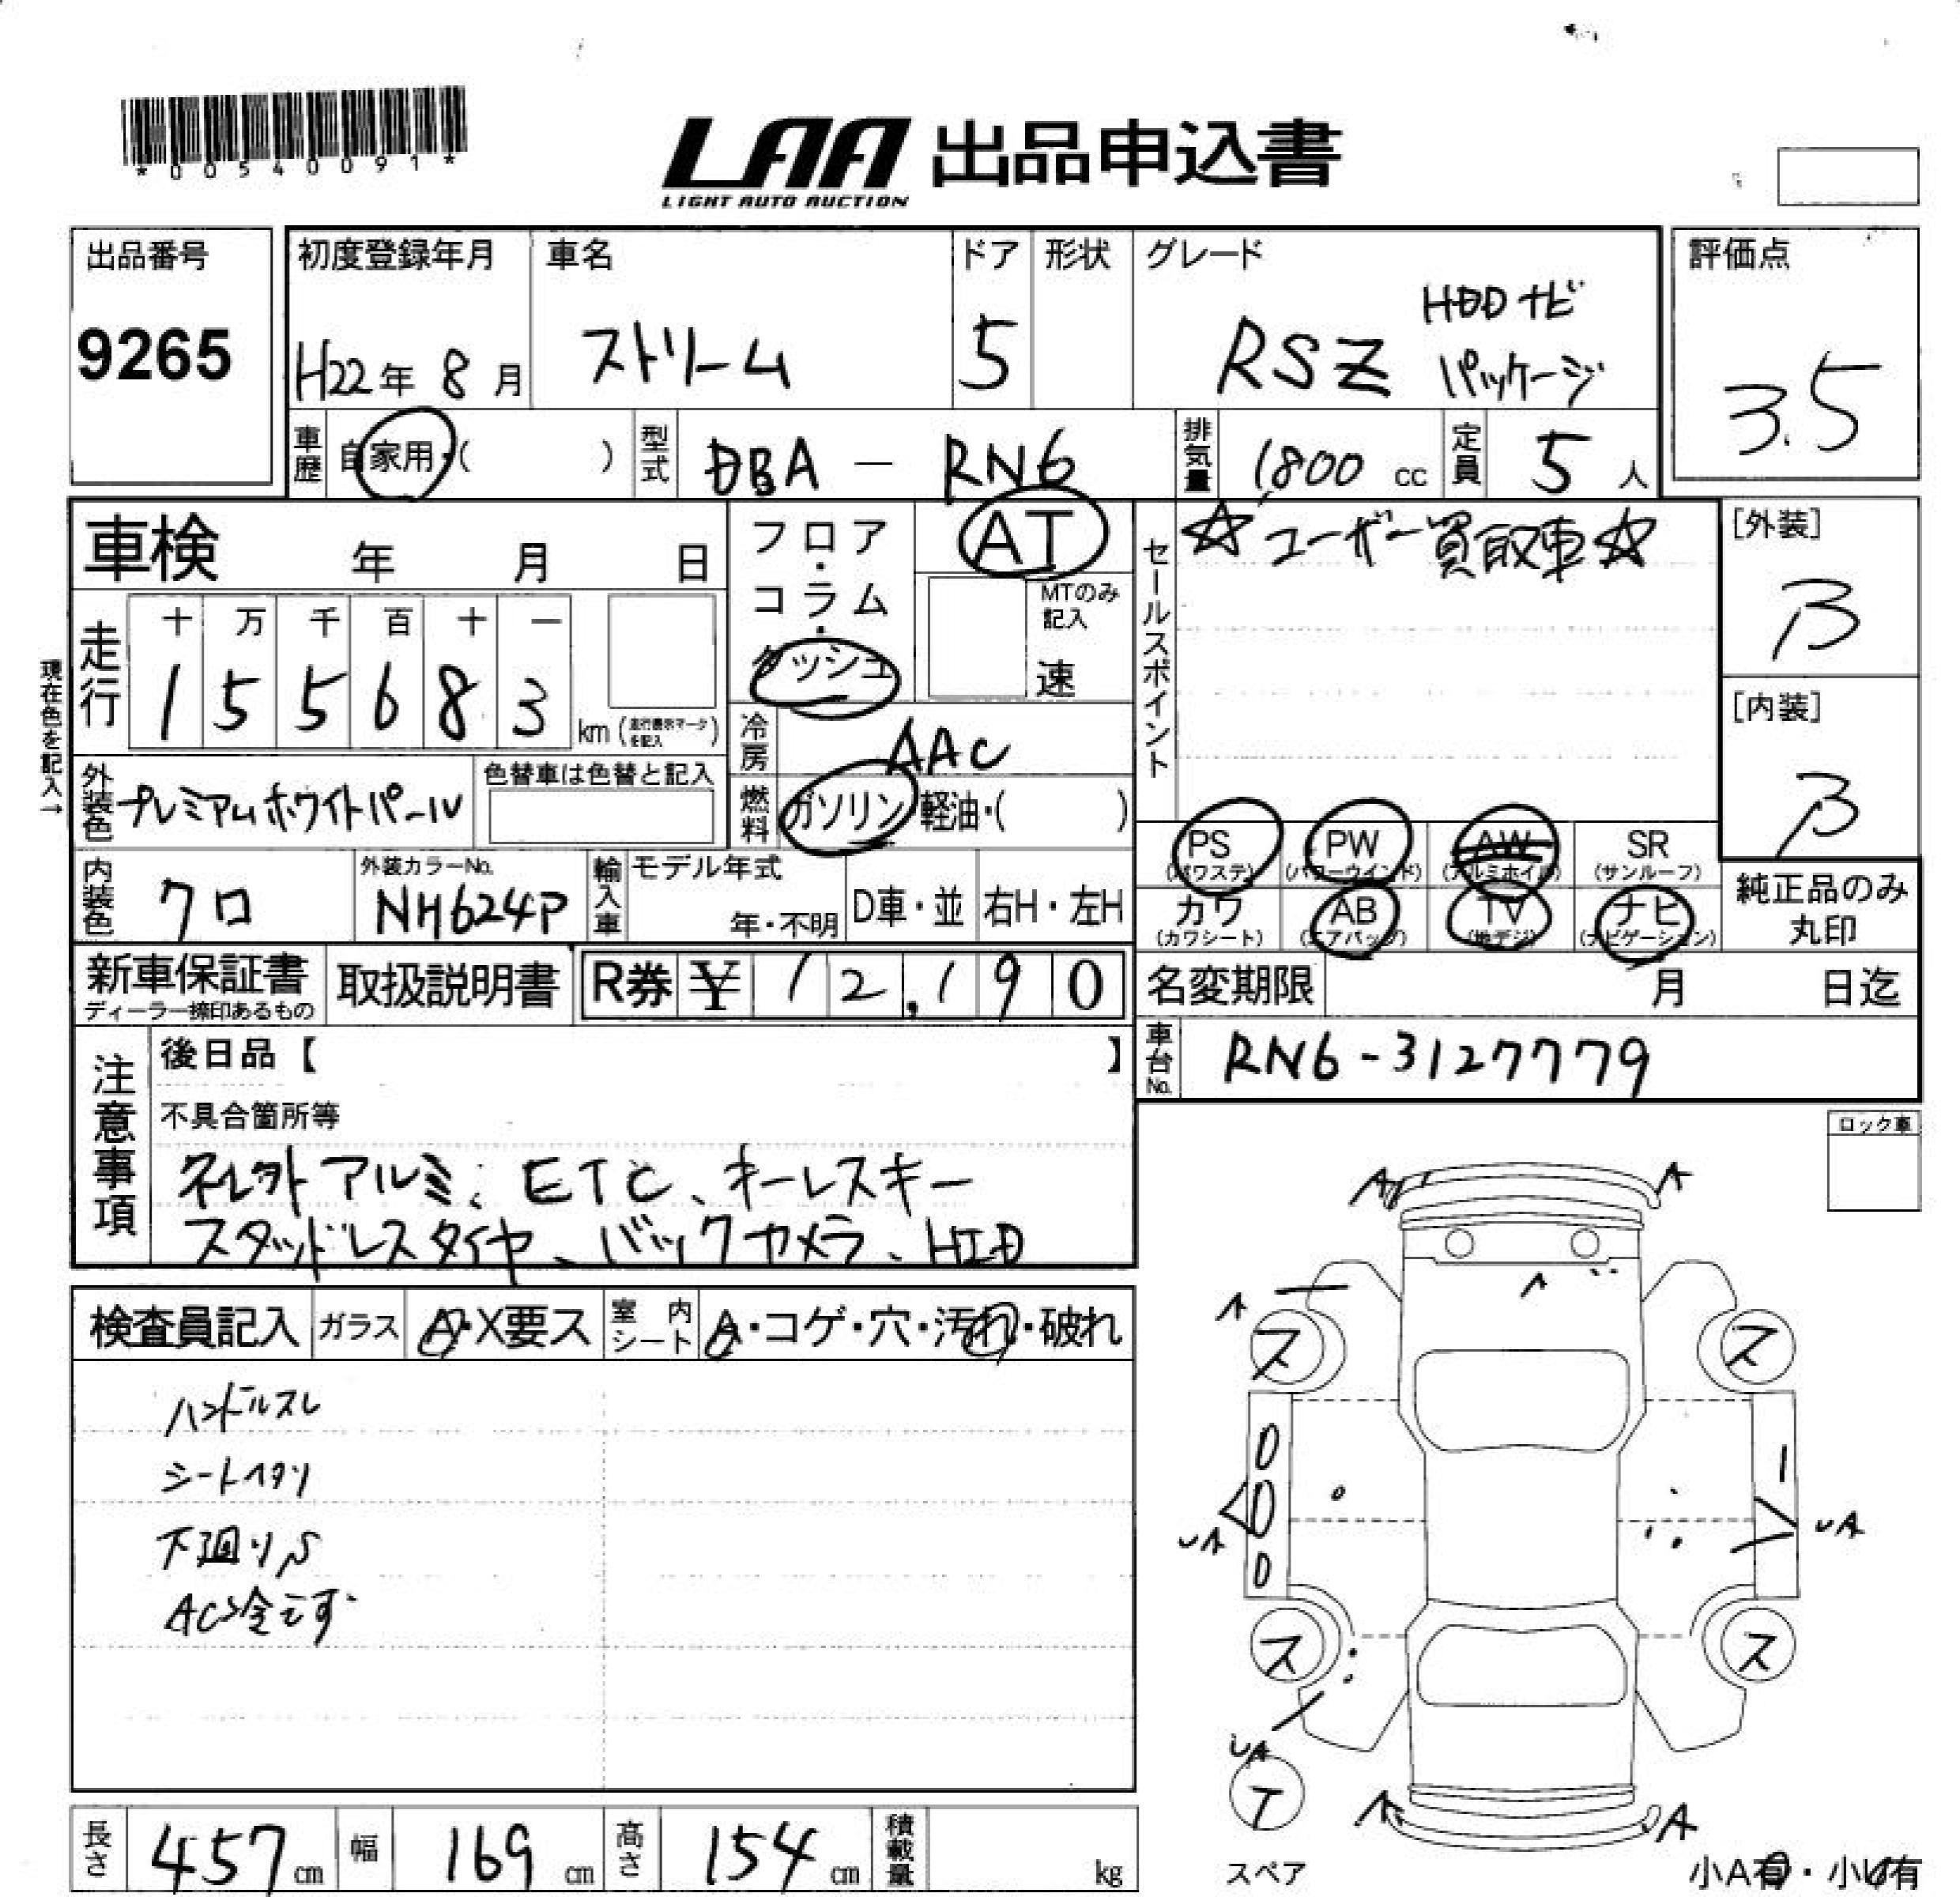 *00540091*
LAA 出品申込書
LIGHT AUTO AUCTION
出品番号 9265
初度登録年月 H22年 8月
車名 ストリーム
ドア 5
形状
グレード RSZ HDDナビ パッケージ
評価点 3.5
車歴 自家用・( )
型式 DBA - RN6
排気量 1800 cc
定員 5 人
車検 年 月 日
フロア・コラム・ダッシュ
AT
MTのみ記入 速
セールスポイント
☆ユーザー買取車☆
[外装] B
[内装] B
現在色を記入→
走行 十 万 千 百 十 一
1 5 5 6 8 3 km (走行表示マークを記入)
冷房 AAC
外装色 プレミアムホワイトパール
色替車は色替と記入
燃料 ガソリン・軽油・( )
PS (パワステ) PW (パワーウインド) AW (アルミホイル) SR (サンルーフ)
カワ (カワシート) AB (エアバッグ) TV (地デジ) ナビ (ナビゲーション)
純正品のみ丸印
内装色 クロ
外装カラーNo. NH624P
輸入車 モデル年式 年・不明 D車・並 右H・左H
新車保証書 ディーラー捺印あるもの
取扱説明書
R券 ¥ 12,190
名変期限 月 日迄
車台No. RN6-3127779
注意事項
後日品【 】
不具合箇所等
アルミ、ETC、キーレスキー
スタッドレスタイヤ、バックカメラ、HID
ロック車
検査員記入 ガラス A・X要ス 室内シート A・コゲ・穴・汚れ・破れ
ハンドルスレ
シートヘタリ
下廻りS
AC冷えず
A A
A
ス ス
UA UA
ス ス
UA
T
A A
スペア
小A有・小U有
長さ 457 cm 幅 169 cm 高さ 154 cm 積載量 kg